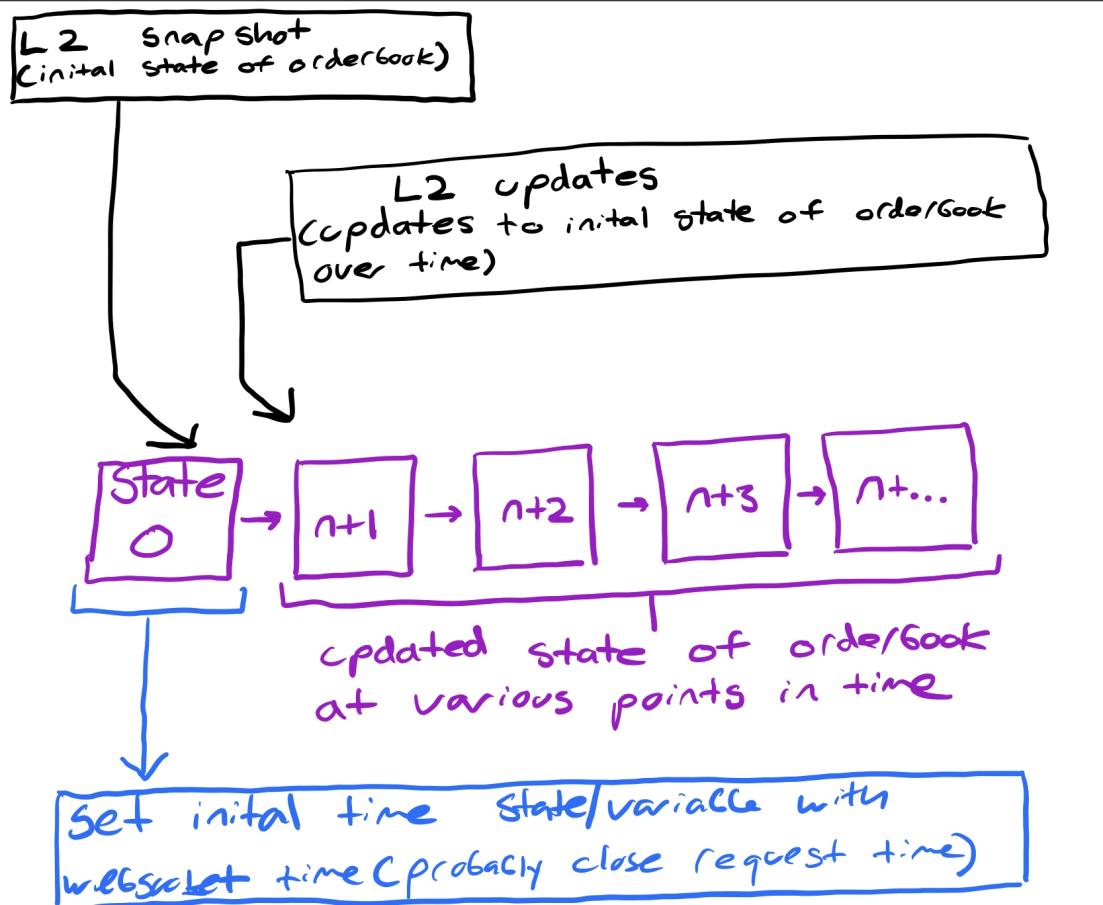 L2 snapshot
(inital state of orderbook)
L2 updates
(updates to inital state of orderbook
over time)
State
0
n+1
n+2
n+3
n+...
updated state of orderbook
at various points in time
set inital time state/variable with
websocket time (probably close request time)